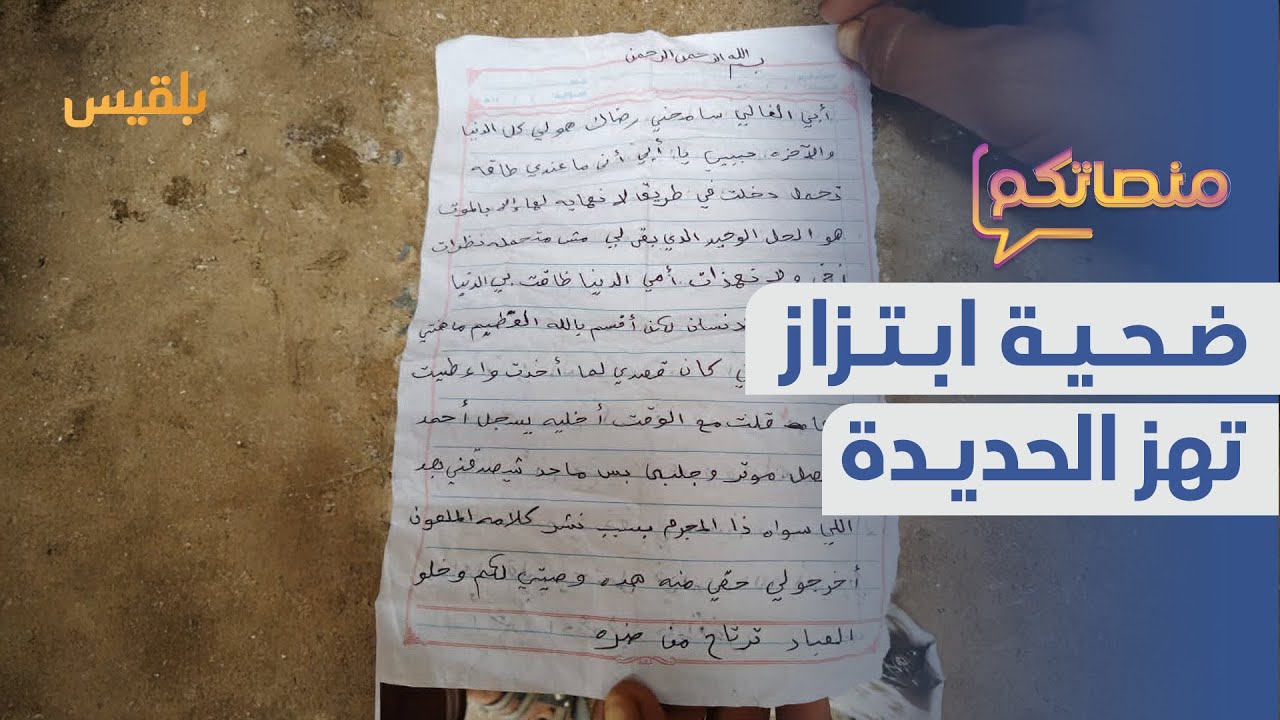 بلقيس
منصاتكم
ضحية ابتزاز
تهز الحديدة
بسم الله الرحمن الرحمن
أبي الغالي سامحني رضاك هولي كل الدنيا
والآخره حبيب يا أبي أن ما عندي طاقه
تحمل دخلت في طريق لا نهايه لهاء إلا بالموت
هو الحل الوحيد الدي بقى لي مش متحمله نظرات
ولا نهذات أمي الدنيا ظاقت بي الدنيا
لانسان لكن أقسم بالله العظيم ما همتي
كان قصدي لما أخدت واعطيت
قلت مع الوقت أخليه يسجل أحمد
موتر وجلبى بس ماحد شيصدقني بعد
اللي سواه ذا المجرم بسبب نشر كلامه الملعون
أخرجولي حقي منه هده وصيتي لكم وخلو
العباد ترتاح من ضره